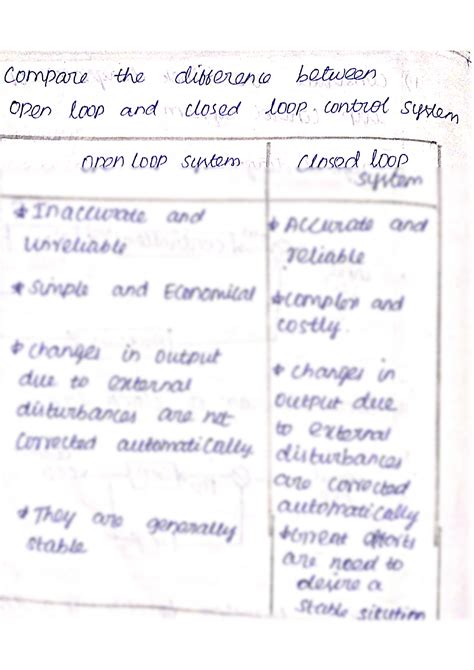 Compare the difference between
open loop and closed loop control system
open loop system
* Inaccurate and
unreliable
* Simple and Economical
* changes in output
due to external
disturbances are not
corrected automatically.
* They are generally
stable
closed loop
system
* Accurate and
reliable
* complex and
costly
* changes in
output due
to external
disturbances
are corrected
automatically
* Great efforts
are need to
desire a
stable sitution